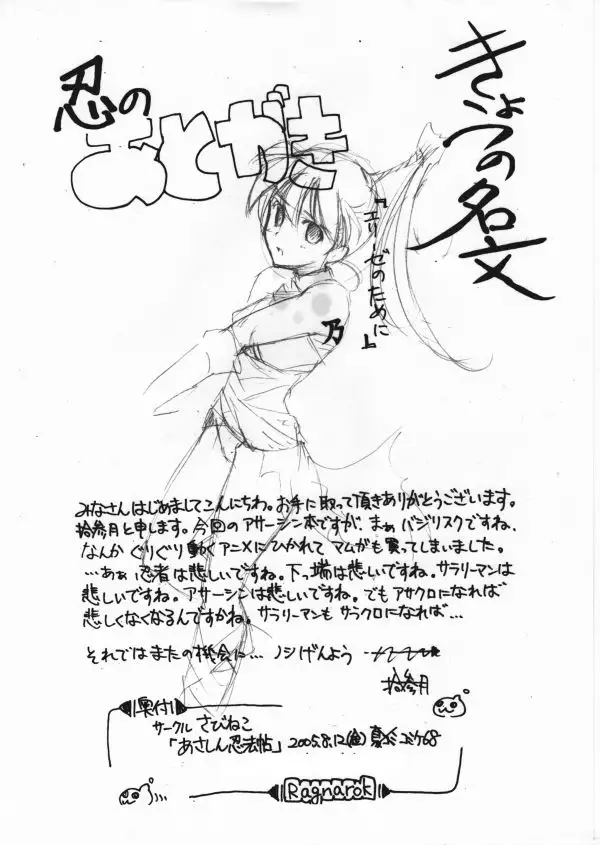 きょうの名文
『エリーゼのために』
忍の
あとがき
乃
みなさんはじめましてこんにちわ。お手に取って頂きありがとうございます。
拾参月と申します。今回のアサシーン本ですが、まぁバジリスクですね、
なんかぐりぐり動くアニメにひかれてマムがも買ってしまいました。
…あぁ忍者は悲しいですね。下っ端は悲しいですね。サラリーマンは
悲しいですね。アサシーンは悲しいですね。でもアサクロになれば
悲しくなくなるんですかね。サラリーマンもサラクロになれば…
それではまたの機会に…ノシげんよう
拾参月
奥付
サークル さびねこ
「あさしん忍法帖」 2005.8.12(金) 夏コミコミケ68
Ragnarok